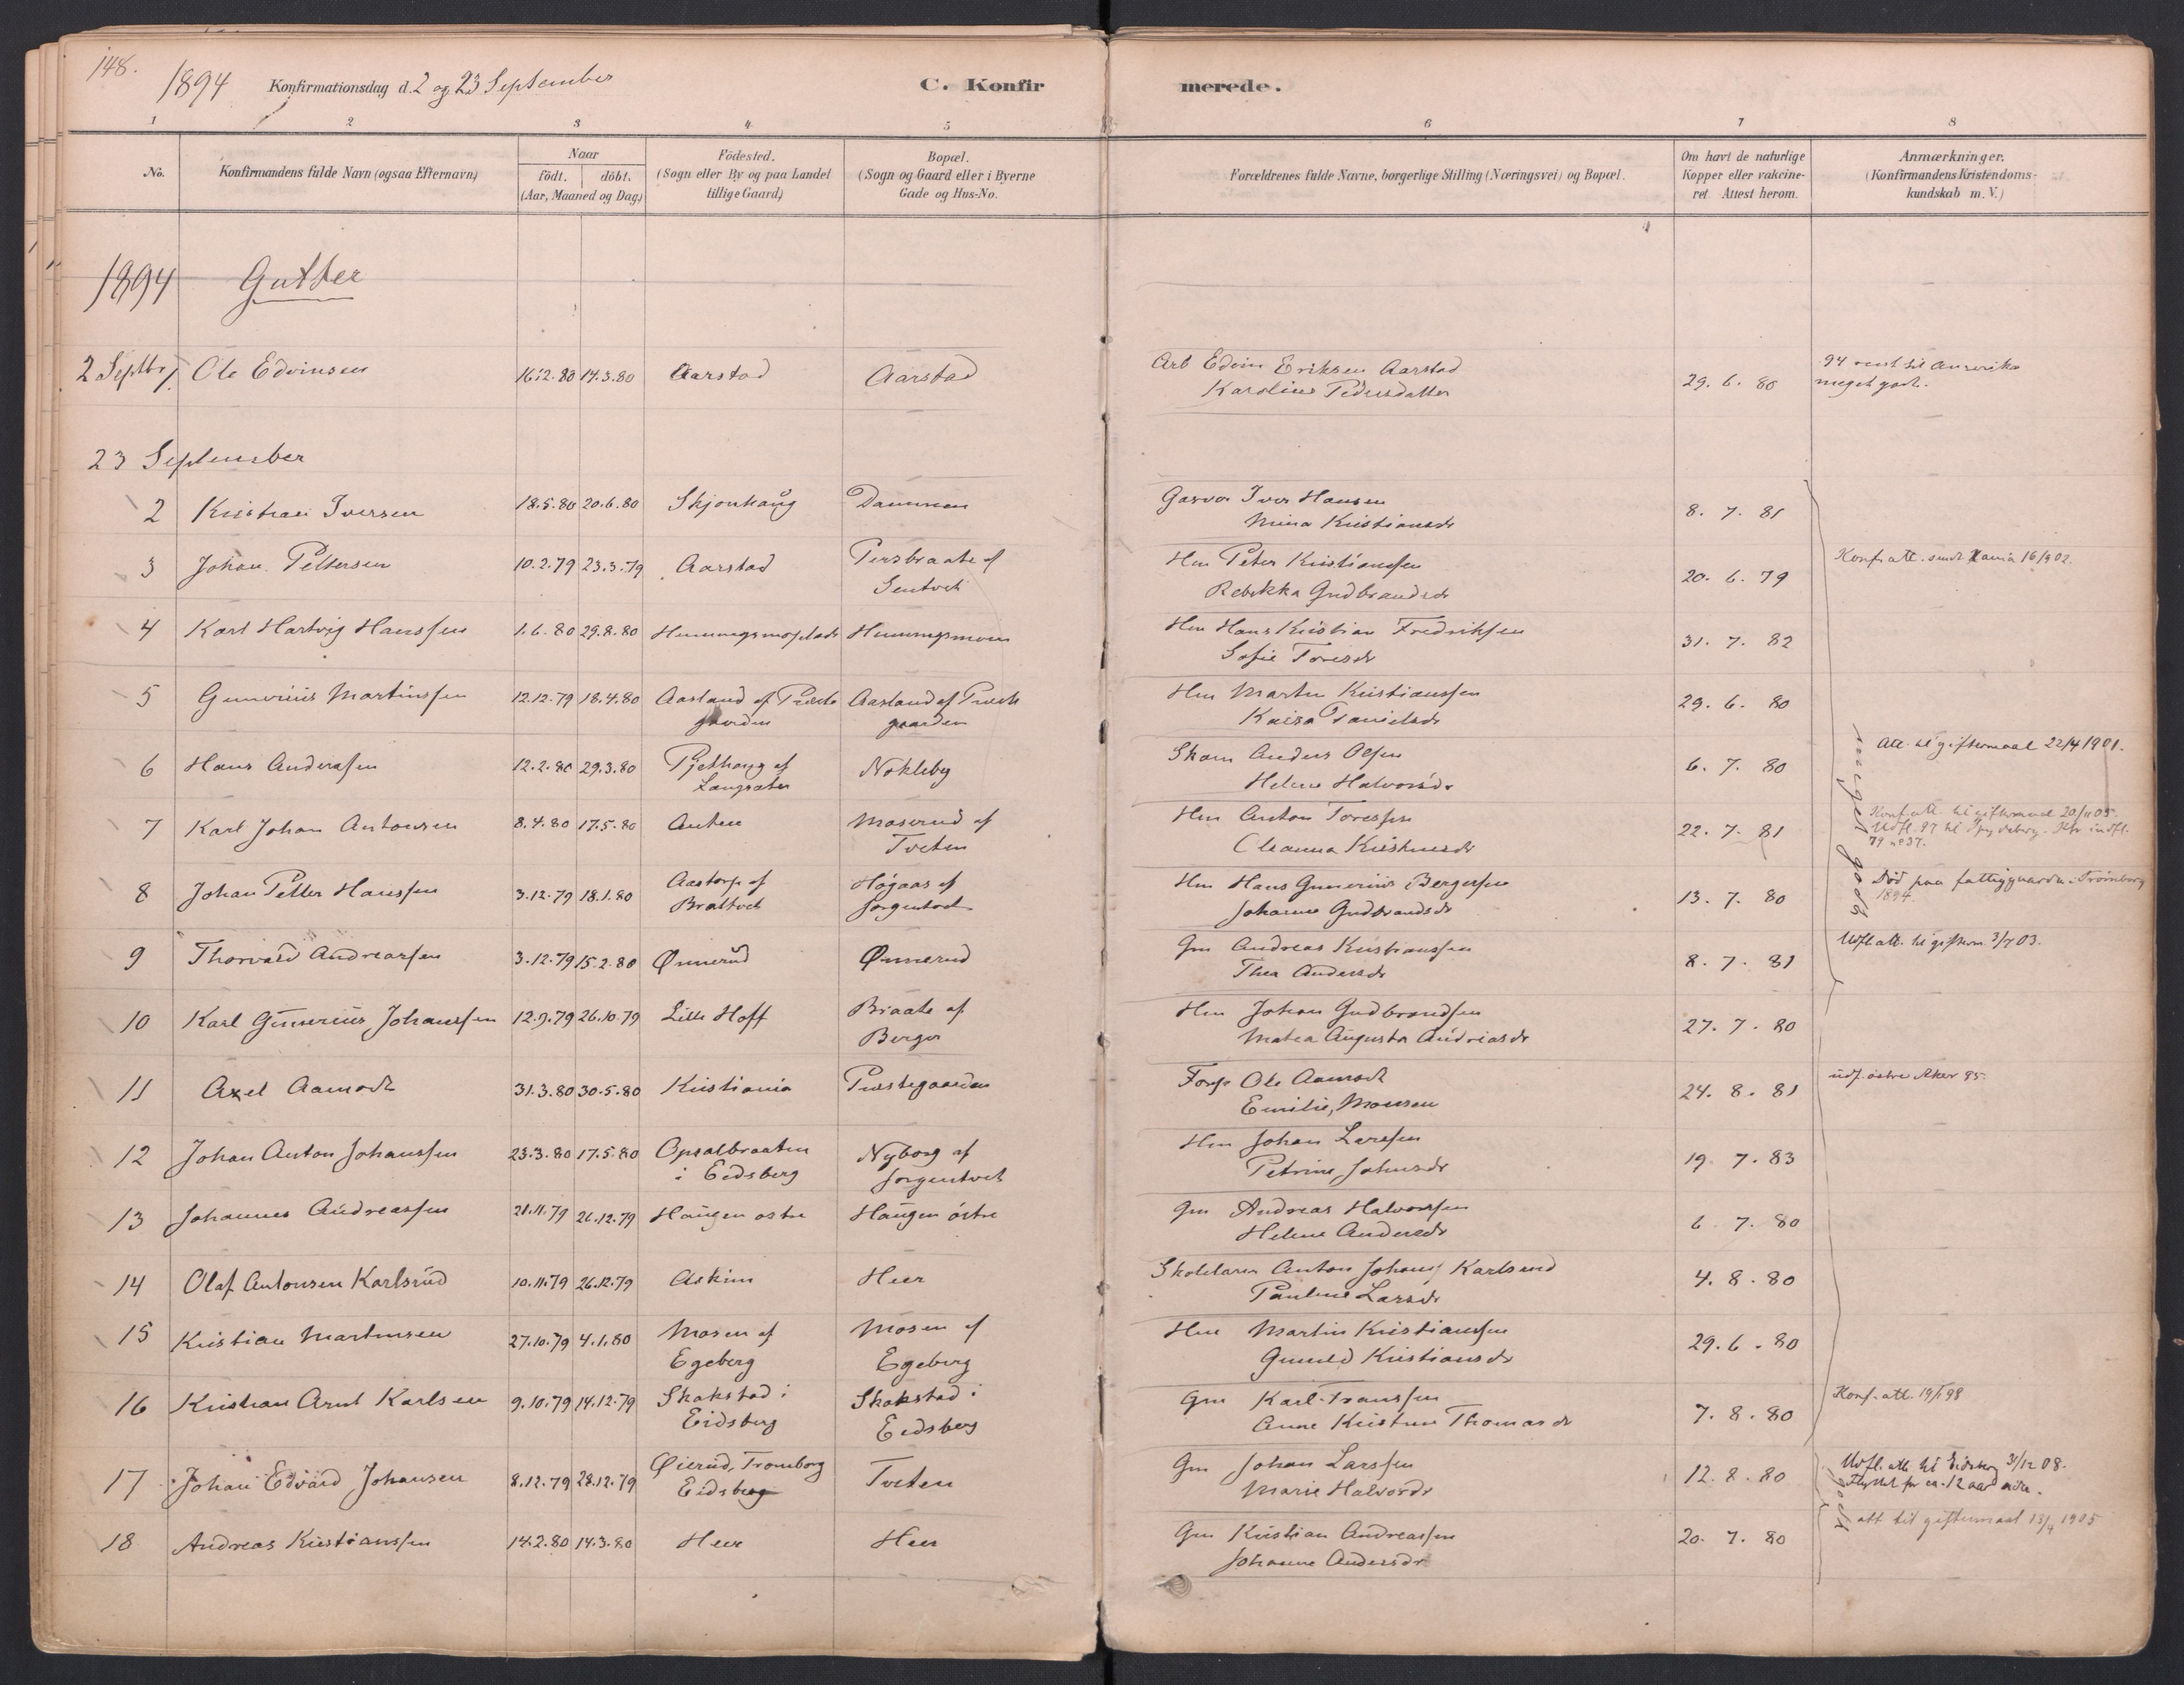 148.
1894 Konfirmationsdag d. 2 og 23 September
C. Konfirmerede.
1 2 3 4 5 6 7 8
No. Konfirmandens fulde Navn (ogsaa Efternavn)
Naar
födt. döbt.
(Aar, Maaned og Dag)
Födested.
(Sogn eller By og paa Landet
tillige Gaard)
Bopæl.
(Sogn og Gaard eller i Byerne
Gade og Hus-No.
Forældrenes fulde Navne, borgerlige Stilling (Næringsvei) og Bopæl.
Om havt de naturlige
Kopper eller vakcine-
ret. Attest herom.
Anmærkninger.
(Konfirmandens Kristendoms-
kundskab m. V.)
1894 Gutter
2 Septbr 1 Ole Edvinsen 16.2.80 14.3.80 Aarstad Aarstad Arb Edvin Eriksen Aarstad 29. 6. 80 94 reist til Amerika
Karoline Pedersdatter meget godt.
23 September
2 Kristian Iversen 18.5.80 20.6.80 Skjonhaug Dammen Garver Iver Hansen 8. 7. 81
Mina Kristiansdr
3 Johan Pettersen 10.2.79 23.3.79 Aarstad Persbraate af Hm Peter Kristianssen 20. 6. 79 Konf. att. sendt Kania 16/9 02.
Sentvet Rebekka Gudbrandsdr
4 Karl Hartvig Hanssen 1.6.80 29.8.80 Hm Hans Kristian Fredriksen 31. 7. 82
Sofie Toresdr
5 Gunerius Martinssen 12.12.79 18.4.80 Aasland af Preste Aasland af Preste Hm Martin Kristianssen 29. 6. 80
gaarden gaarden Kaisa Danielsdr
6 Hans Anderssen 12.2.80 29.3.80 Pjethaug af Nokleby Skom Anders Olsen 6. 7. 80 Att. til giftermaal 22/4 1901.
Langsater Helene Halvorsdr
7 Karl Johan Antonsen 8.4.80 17.5.80 Anten Moserud af Hm Anton Toressen 22. 7. 81 Konf. att. til giftermaal 20/11 05.
Tveten Oleanna Kristiansdr Udfl. 97 til Spydeberg. Kfr. indfl.
79 no 37.
8 Johan Petter Hanssen 3.12.79 18.1.80 Aastorp af Högaas af Hm Hans Gunerius Bergersen 13. 7. 80 Död paa fattiggaarden i Trömborg
Brattvet Sorgentvet Johanne Gudbrandsdr 1894.
9 Thorvald Andreassen 3.12.79 15.2.80 Ønnerud Ønnerud Gm Andreas Kristianssen 8. 7. 81 Udfl. att. til gifterm. 3/7 03.
Thea Andersdr
meget godt
10 Karl Gunerius Johanssen 12.9.79 26.10.79 Lille Hoff Braate af Hm Johan Gudbrandsen 27. 7. 80
Berger Matea Augusta Andreasdr
11 Axel Aamodt 31.3.80 30.5.80 Kristiania Prestegaarden Forp Ole Aamodt 24. 8. 81 udf. östre Aker 95.
Emilie, Monsen
12 Johan Anton Johanssen 23.3.80 17.5.80 Opsalbraaten Nyborg af Hm Johan Larssen 19. 7. 83
i Eidsberg Sorgentvet Petrine Johnsdr
13 Johannes Andreassen 21.11.79 26.12.79 Haugen östre Haugen östre Gm Andreas Halvorssen 6. 7. 80
Helene Andersdr
14 Olaf Antonsen Karlsrud 10.11.79 26.12.79 Askim Heer Skolelærer Anton Johans. Karlsrud 4. 8. 80
Pauline Larsdr
15 Kristian Martinsen 27.10.79 4.1.80 Mosen af Mosen af Hm Martin Kristianssen 29. 6. 80
Egeberg Egeberg Gunild Kristiansdr
16 Kristian Arnt Karlsen 9.10.79 14.12.79 Skakstad i Skakstad i Gm Karl Franssen 7. 8. 80 Konf. att. 19/1 98
Eidsberg Eidsberg Anne Kristine Thomasdr
17 Johan Edvard Johansen 8.12.79 28.12.79 Øierud, Tromborg Tveten Gm Johan Larssen 12. 8. 80 Udfl. att. til Eidsberg 3/12 08.
Eidsberg Marie Halvorsdr Flyttet for ca. 12 aar siden.
godt
18 Andreas Kristianssen 14.2.80 14.3.80 Heer Heer Gm Kristian Andreassen 20. 7. 80 att til giftermaal 13/4 1905
Johanne Andersdr